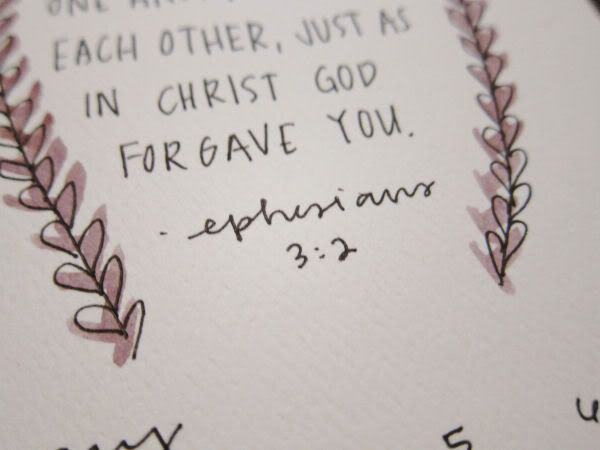 ONE
EACH OTHER, JUST AS
IN CHRIST GOD
FORGAVE YOU.
- ephesians
3:2
5